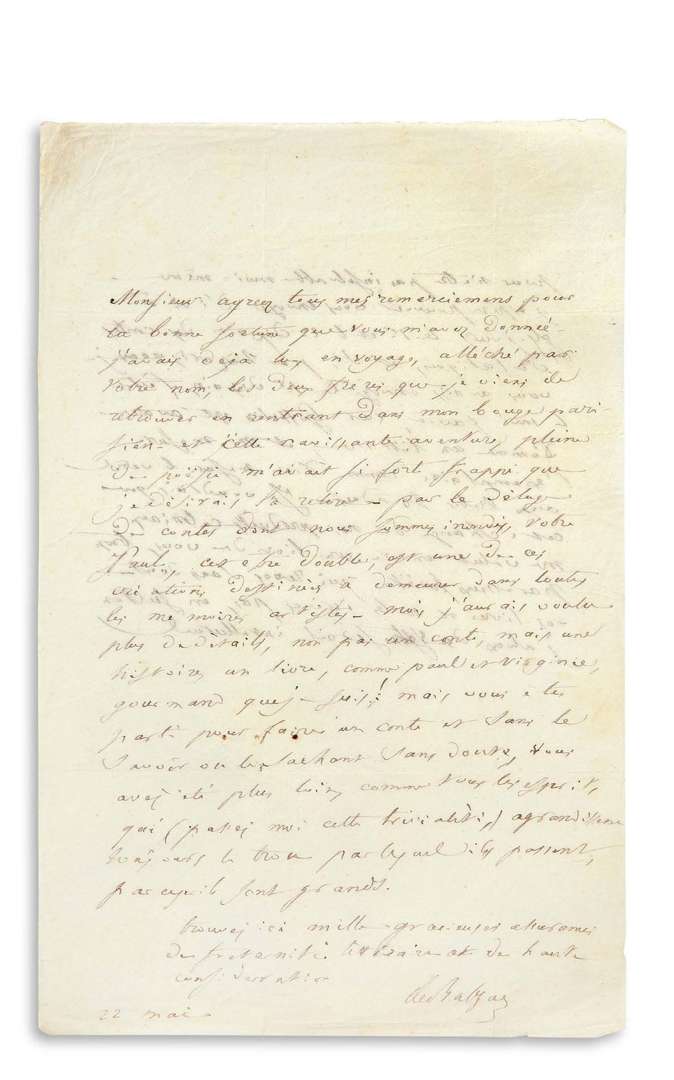 Monsieur agreez tous mes remerciemens pour
la bonne fortune que vous m'avez donnée
j'avais déjà lu, en voyage, alléché par
votre nom, les deux freres que je viens de
retrouver en rentrant dans mon bouge pari
sien - et cette ravissante aventure, pleine
de poësie m'avait si fort frappé que
je desirais la relire - par le déluge
de contes dont nous sommes inondés, votre
Paul, cet etre double, est une de ces
créations destinées à demeurer dans toutes
les memoires artistes - mais j'aurais voulu
plus de details, non pas un conte, mais une
histoire, un livre, comme paul et virginie,
gourmand que je suis! mais vous etes
parti pour faire un conte et sans le
savoir ou le sachant sans doute, vous
avez été plus loin, comme tous les esprits,
qui (passez moi cette trivialité,) agrandissent
toujours le trou par lequel ils passent,
parcequ'ils sont grands.
trouvez ici mille gracieuses assurances
de fraternité littéraire et de haute
consideration
de Balzac
22 mai